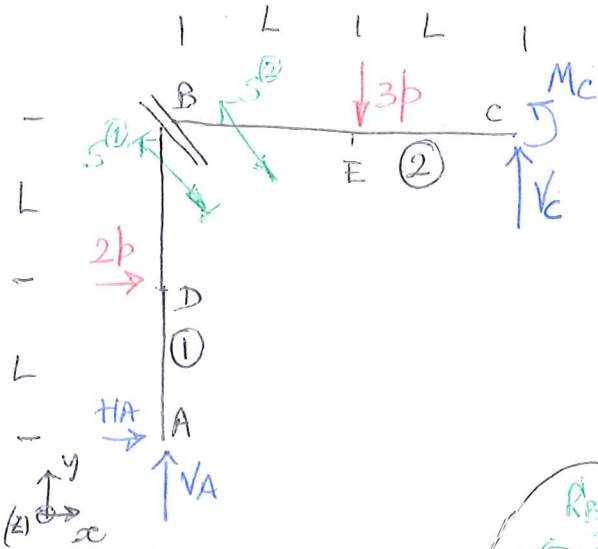 L L
B
S②
3p
C
Mc
S①
E
②
Vc
L
2p
D
①
L
HA
A
VA
y
(z)
x
RB